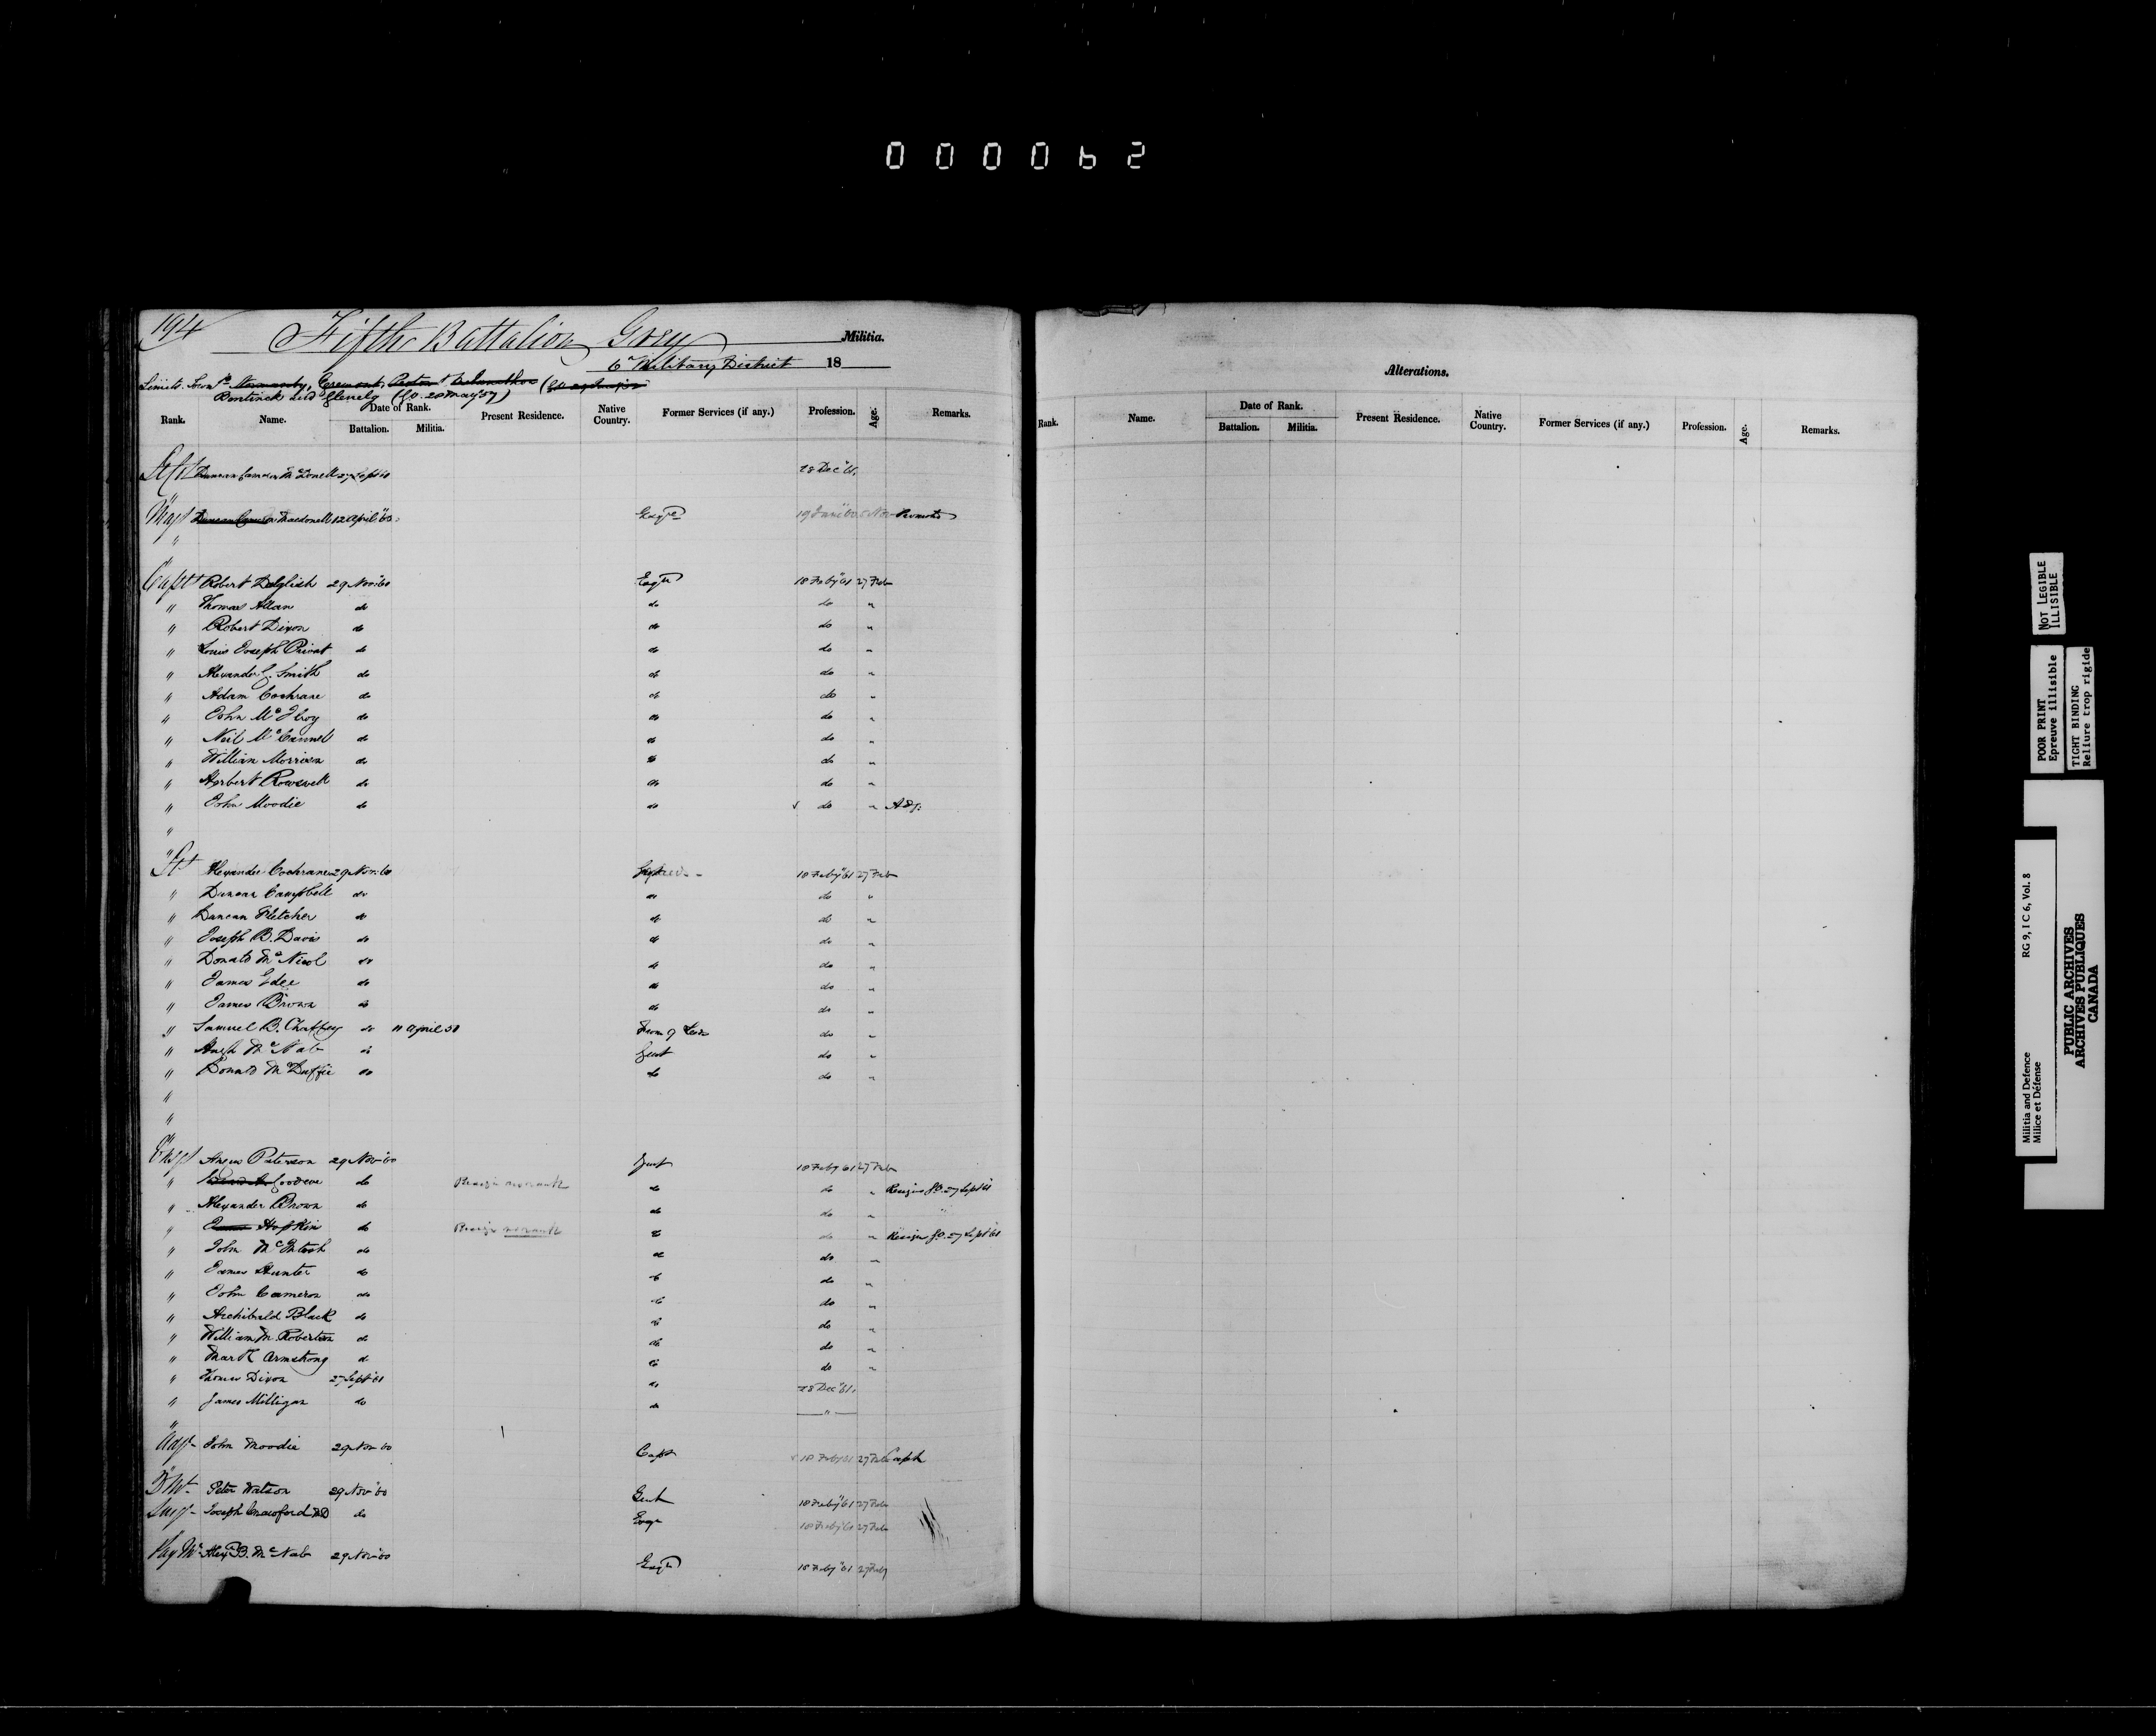 000062
194
Fifth Battalion Grey Militia.
6th Military District 18
Limits. Town Ps Normanby, Egremont, Proton & Melancthon
Bentinck and Glenelg (GO. 20 May 57)
Rank. Name. Date of Rank. Battalion. Militia. Present Residence. Native Country. Former Services (if any.) Profession. Age. Remarks.
Duncan Cameron McDonell 27 Sept 28 Dec '61.
Maj Duncan Cameron Macdonell 12 April '60 Esqre 19 June '60 5 Nov Promoted
"
"
Capt Robert Dalglish 29 Nov. '60 Esqre 18 Feby '61 27 Feb
" Thomas Allan do do do "
" Robert Dixon do do do "
" Louis Joseph Privat do do do "
" Alexander G. Smith do do do "
" Adam Cochrane do do do "
" John McIlroy do do do "
" Neil McCannel do do do "
" William Morrison do do do "
" Herbert Rowswell do do do "
" John Moodie do do √ do " Adj.
"
"
Lt Alexander Cochrane 29 Nov. 60 18 Feby '61 27 Feb
" Duncan Campbell do do do "
" Duncan Fletcher do do do "
" Joseph B. Davis do do do "
" Donald McNicol do do do "
" James Edee do do do "
" James Brown do do do "
" Samuel B. Chaffey do 11 April 58 do "
" Hugh McNab do Gent do "
" Donald McDuffie do do do "
"
"
"
Ensn Angus Paterson 29 Nov '60 Gent 18 Feby 61 27 Feb
" Goodeve do Resign no rank do do " Resigns G.O. 27 Sept 61
" Alexander Brown do do do "
" James Hopkin do Resign no rank do do " Resign G.O. 27 Sept 61
" John McIntosh do do do "
" James Hunter do do do "
" John Cameron do do do "
" Archibald Black do do do "
" William M. Robertson do do do "
" Mark Armstrong do do do "
" Thomas Dixon 27 Sept 61 do 28 Dec '61.
" James Milligan do do "
"
Adjt John Moodie 29 Nov 60 Capt √ 18 Feby 61 27 Feb Capt
"
Q Mr Peter Watson 29 Nov '60 Gent 18 Feby '61 27 Feb
Surg Joseph Crawford MD do Esqr 18 Feby 61 27 Feb
Pay Mr Alex B. McNab 29 Nov '60 Esqre 18 Feby '61 27 Feby
Alterations.
Rank. Name. Date of Rank. Battalion. Militia. Present Residence. Native Country. Former Services (if any.) Profession. Age. Remarks.
NOT LEGIBLE
ILLISIBLE
POOR PRINT
Epreuve illisible
TIGHT BINDING
Reliure trop rigide
Militia and Defence RG 9, I C 6, Vol. 8
Milice et Défense
PUBLIC ARCHIVES
ARCHIVES PUBLIQUES
CANADA